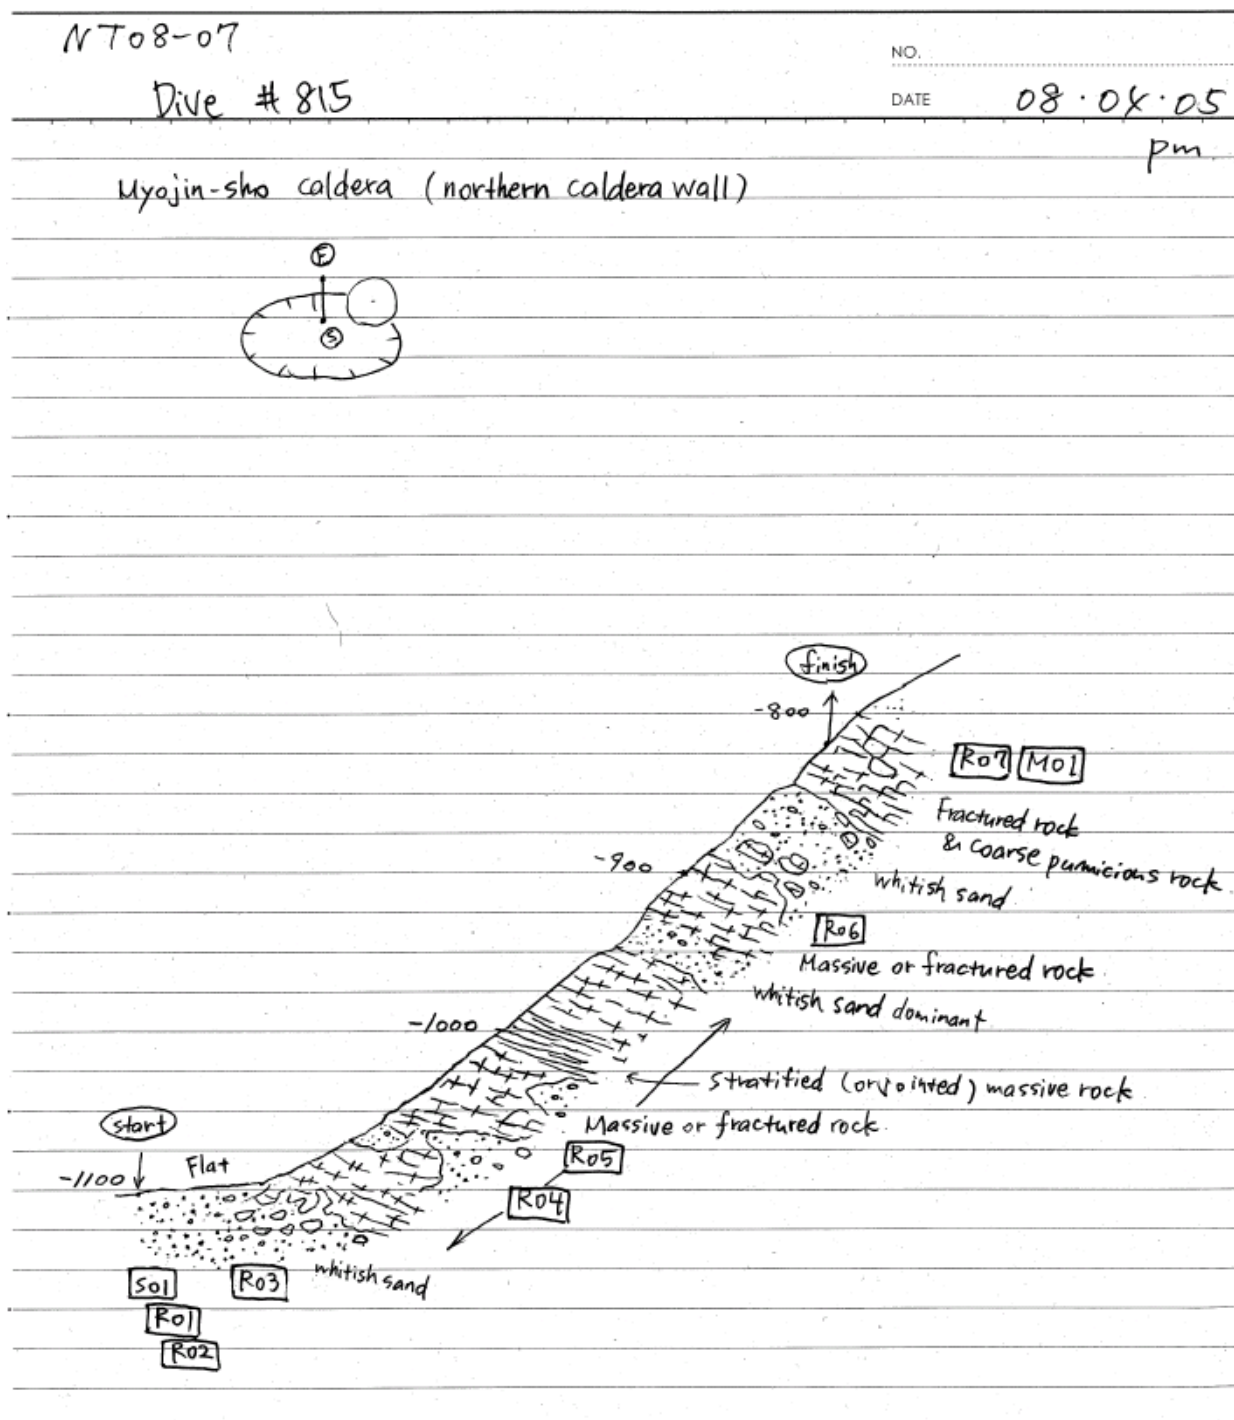 NT08-07
NO.
Dive # 815
DATE 08.04.05
pm
Myojin-sho caldera (northern caldera wall)
F
S
finish
-800
R07 M01
Fractured rock
& coarse pumicious rock
-900
whitish sand
R06
Massive or fractured rock
whitish sand dominant
-1000
stratified (or jointed) massive rock
Massive or fractured rock
start
Flat
-1100
R05
R04
whitish sand
S01
R03
R01
R02